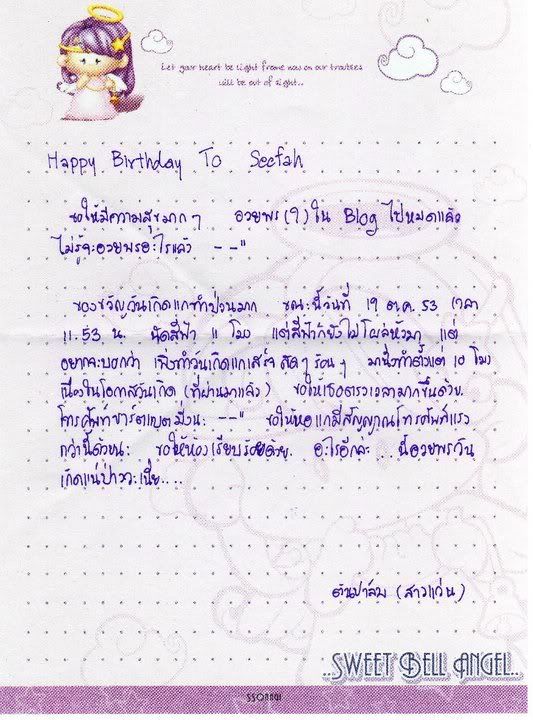 Let your heart be light from now on our troubles
will be out of sight..
Happy Birthday To Seefah
ขอให้มีความสุขมากๆ อวยพร(?)ใน Blog ไปหมดแล้ว
ไม่รู้จะอวยพรอะไรแล้ว --"
ของขวัญวันเกิดแกทำป่วนมาก ขณะนี้วันที่ 19 ต.ค. 53 เวลา
11.53 น. นัดสีฟ้า 11 โมง แต่สีฟ้าก็ยังไม่โผล่หัวมา แต่
อยากจะบอกว่า เพิ่งทำวันเกิดแกเสร็จ สดๆร้อนๆ มานั่งทำตั้งแต่ 10 โมง
เนื่องในโอกาสวันเกิด (ที่ผ่านมาแล้ว) ขอให้เธอตรงเวลามากขึ้นด้วย
โทรศัพท์ชาร์ตแบตมั่งนะ --" ขอให้หอแกมีสัญญาณโทรศัพท์แรง
กว่านี้ด้วยนะ ขอให้ห้องเรียบร้อยด้วย อะไรอีกล่ะ ... นี่อวยพรวัน
เกิดแน่ป่าววะเนี่ย....
ต้นปาล์ม (สาวแว่น)
..SWEET BELL ANGEL..